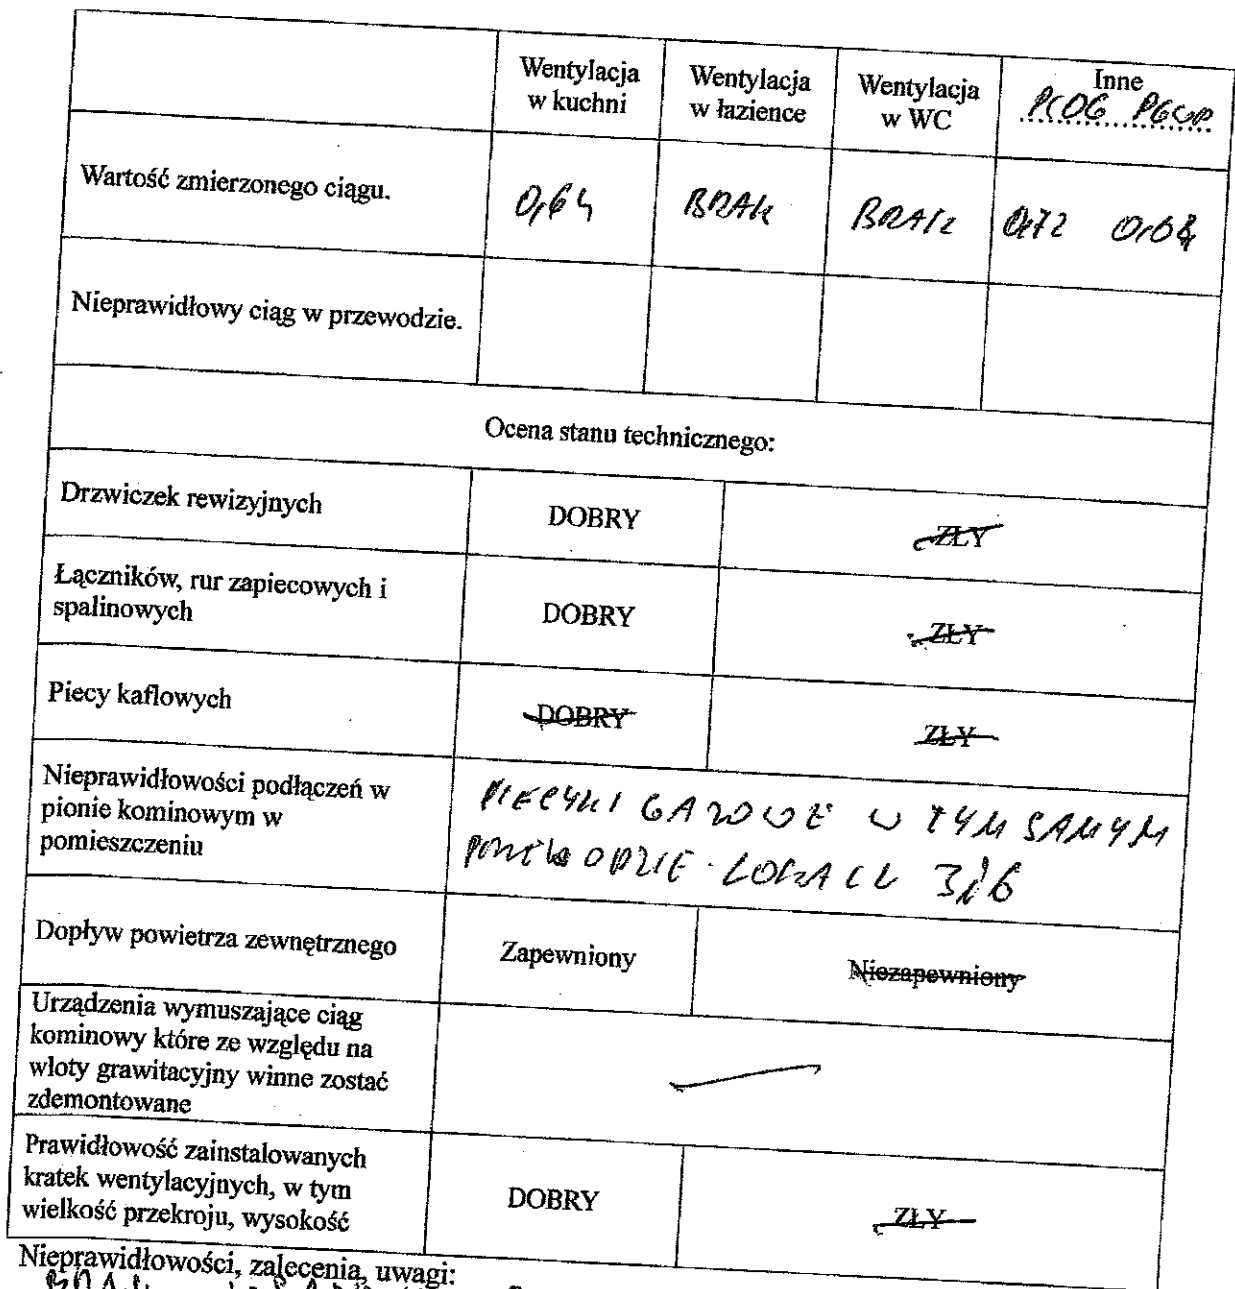 Wentylacja w kuchni
Wentylacja w łazience
Wentylacja w WC
Inne
PCOG PGWP
Wartość zmierzonego ciągu.
0,64
BRAK
BRAK
0,72
Nieprawidłowy ciąg w przewodzie.
Ocena stanu technicznego:
Drzwiczek rewizyjnych
DOBRY
ZŁY
Łączników, rur zapiecowych i
spalinowych
DOBRY
ZŁY
Piecy kaflowych
DOBRY
ZŁY
Nieprawidłowości podłączeń w
pionie kominowym w
pomieszczeniu
PIECYKI GAZOWE W TYM SAMYM
3i6
Dopływ powietrza zewnętrznego
Zapewniony
Niezapewniony
Urządzenia wymuszające ciąg
kominowy które ze względu na
wloty grawitacyjny winne zostać
zdemontowane
Prawidłowość zainstalowanych
kratek wentylacyjnych, w tym
wielkość przekroju, wysokość
DOBRY
ZŁY
Nieprawidłowości, zalecenia, uwagi: